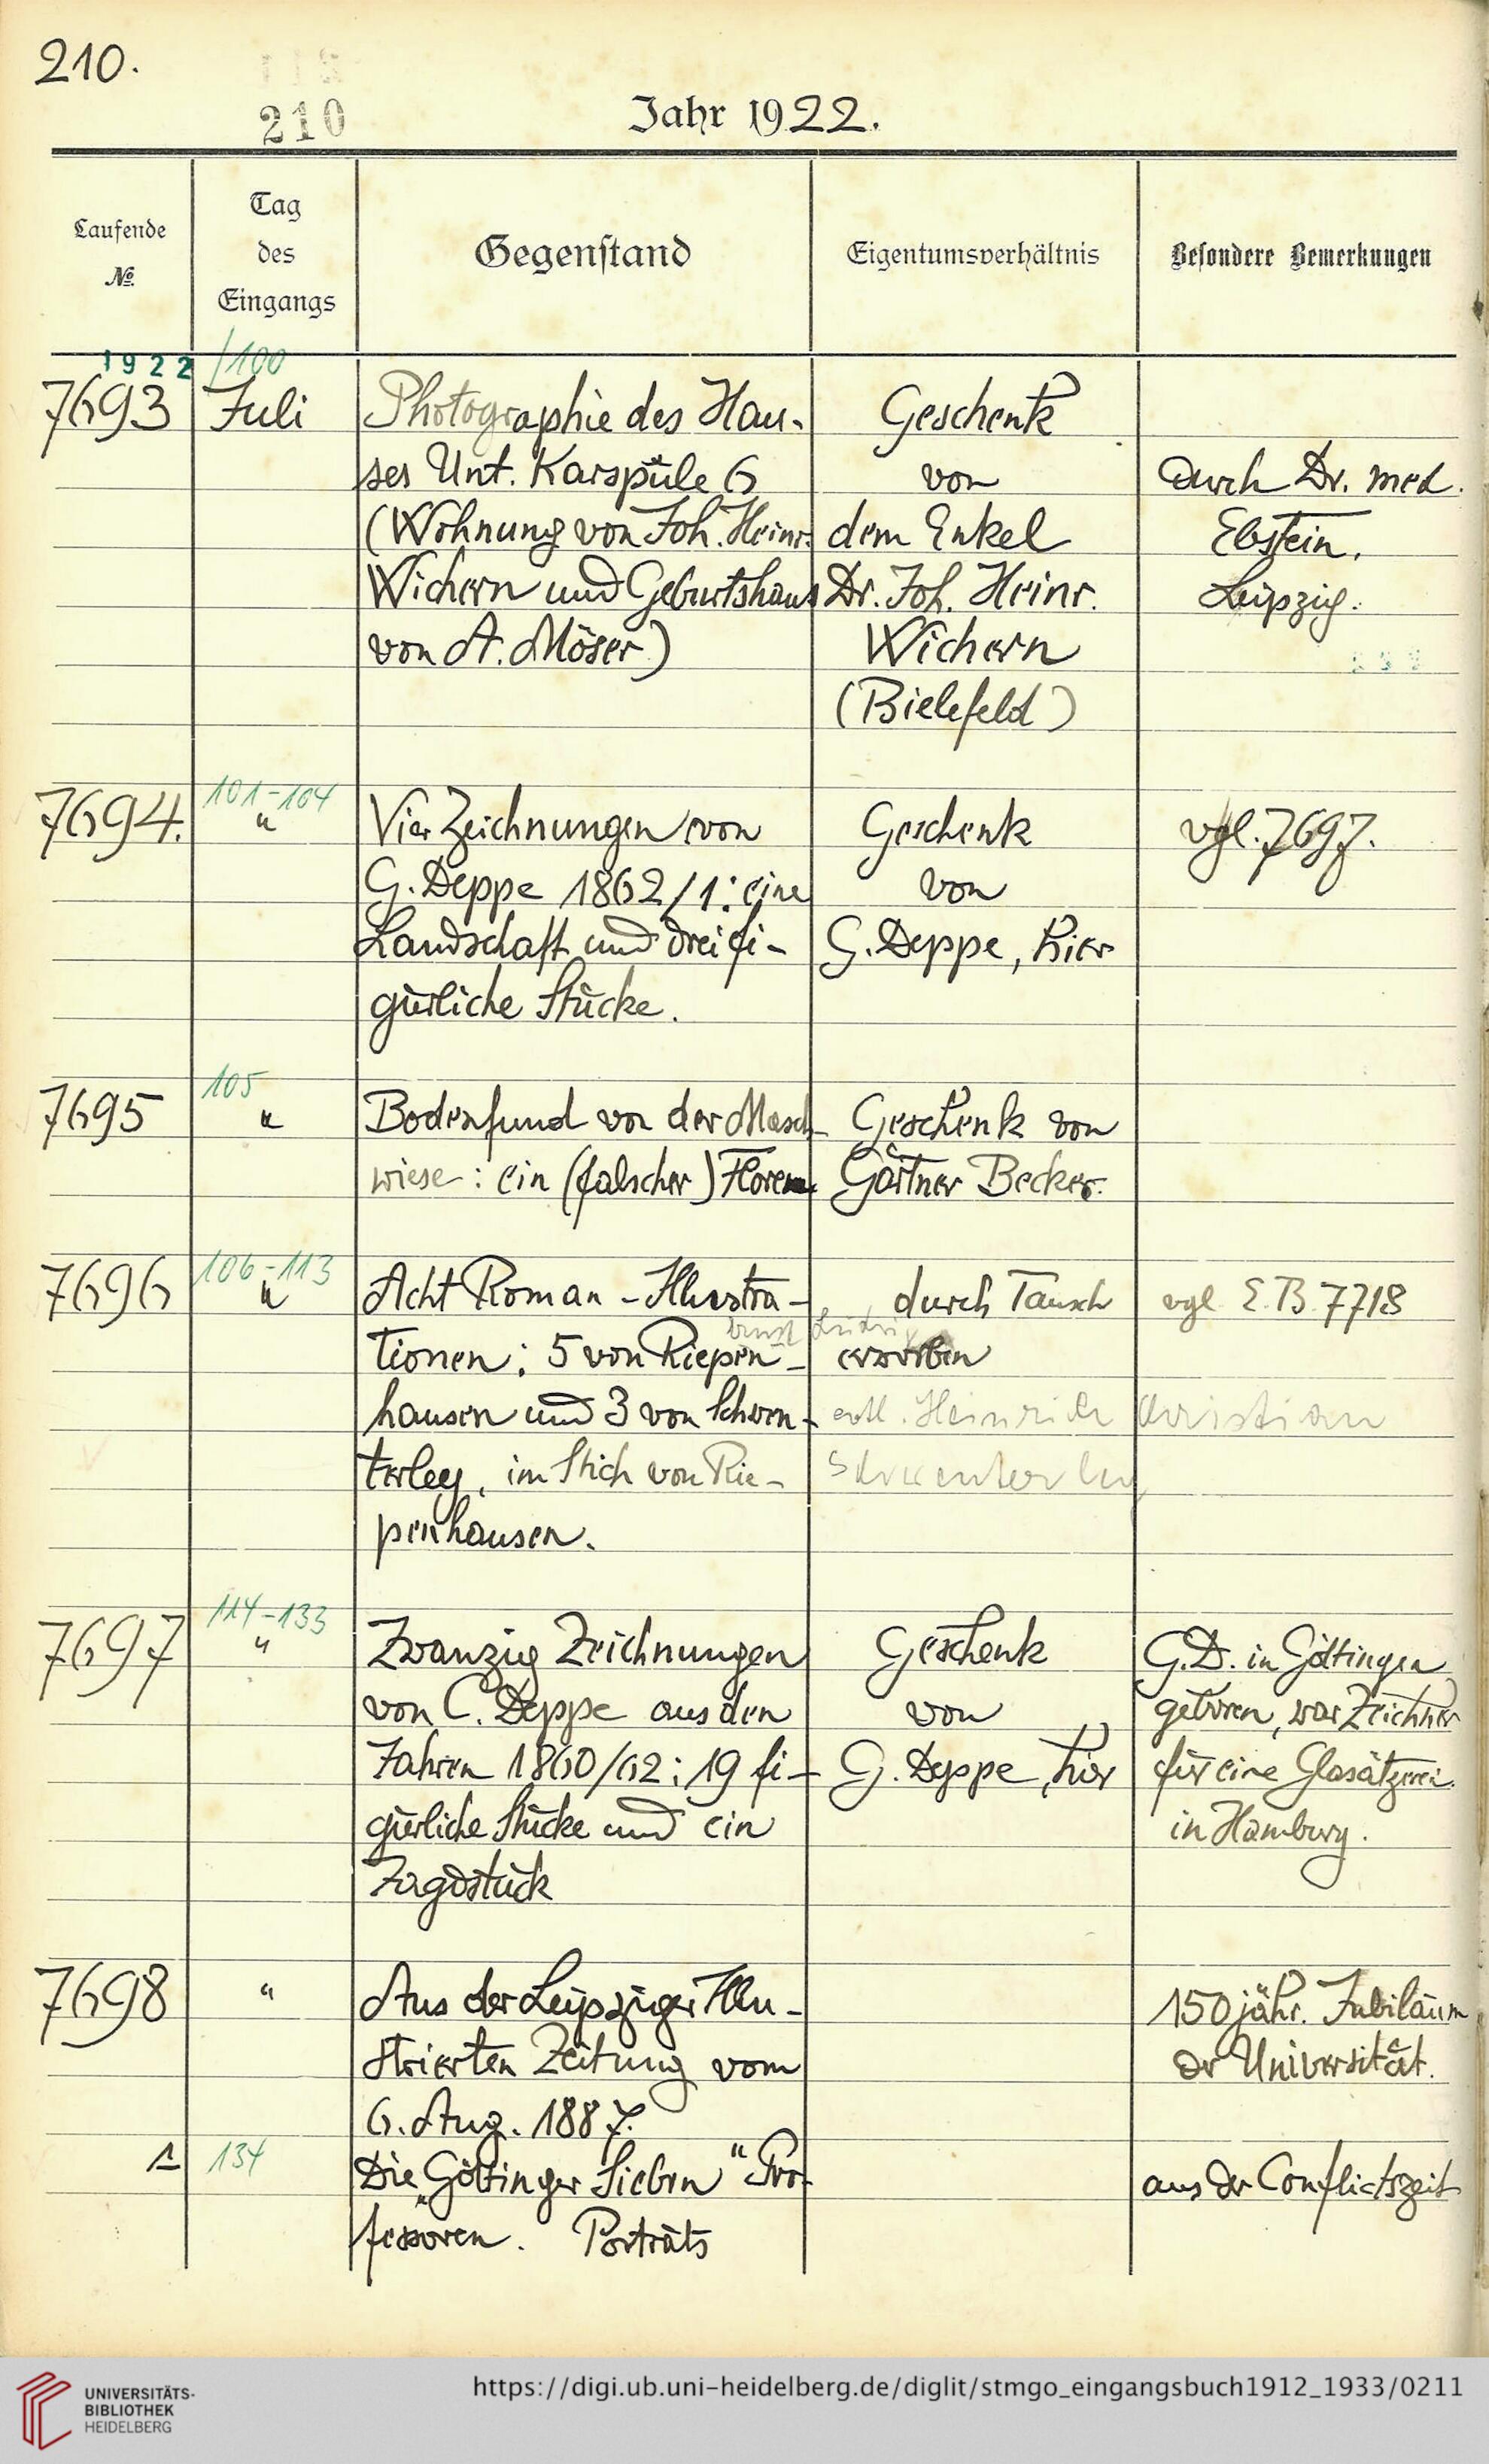 210.
210
Jahr 1922.
Laufende
№
Tag
des
Eingangs
Gegenstand
Eigentumsverhältnis
Besondere Bemerkungen
1922 /100
7693 Juli Photographie des Hau- Geschenk
ses Unt. Karspüle 6 von durch Dr. med.
(Wohnung von Joh. Heinr. dem Enkel Ebstein,
Wichern und Geburtshaus Dr. Joh. Heinr. Leipzig.
von A. Möser) Wichern
(Bielefeld)
101-104
7694. " Vier Zeichnungen von Geschenk vgl. 7697.
G. Deppe 1862/1: eine von
Landschaft und drei fi- G. Deppe, hier
gürliche Stücke.
105
7695 " Bodenfund von der Masch- Geschenk von
wiese: ein (falscher) Floren Gärtner Becker.
106-113
7696 " Acht Roman-Illustra- durch Tausch vgl. E.B. 7718
Ernst Ludw.
tionen: 5 von Riepen- erworben
hausen und 3 von Schwen- evtl. Heinrich Christian
terley, im Stich von Rie- Schwenterley
penhausen.
114-133
7697 " Zwanzig Zeichnungen Geschenk G.D. in Göttingen
von C. Deppe aus den von geboren, war Zeichner
Jahren 1860/62: 19 fi- G. Deppe, hier für eine Glasätzerei
gürliche Stücke und ein in Hamburg.
Jagdstück
7698 " Aus der Leipziger Illu- 150jähr. Jubiläum
strierten Zeitung vom der Universität.
6. Aug. 1887.
1 134 Die „Göttinger Sieben" Pro- aus der Conflictszeit
fessoren. Porträts
UNIVERSITÄTS-
BIBLIOTHEK
HEIDELBERG
https://digi.ub.uni-heidelberg.de/diglit/stmgo_eingangsbuch1912_1933/0211